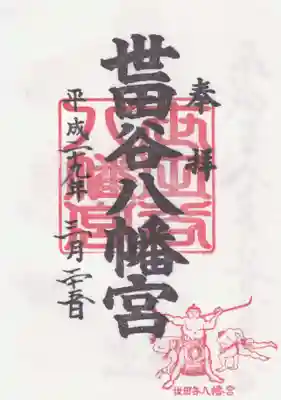 奉拝
世田谷八幡宮
平成二十九年 三月二十五日
世田谷八幡宮
世田谷八幡宮